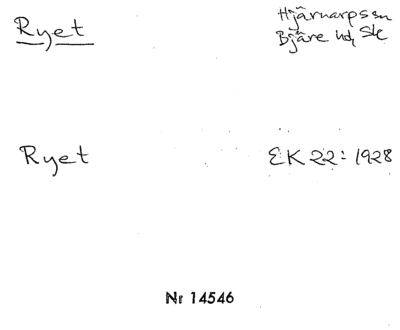 Ryet
Hjärnarps sn
Bjäre hd, Sk
Ryet
EK 22: 1928
Nr 14546